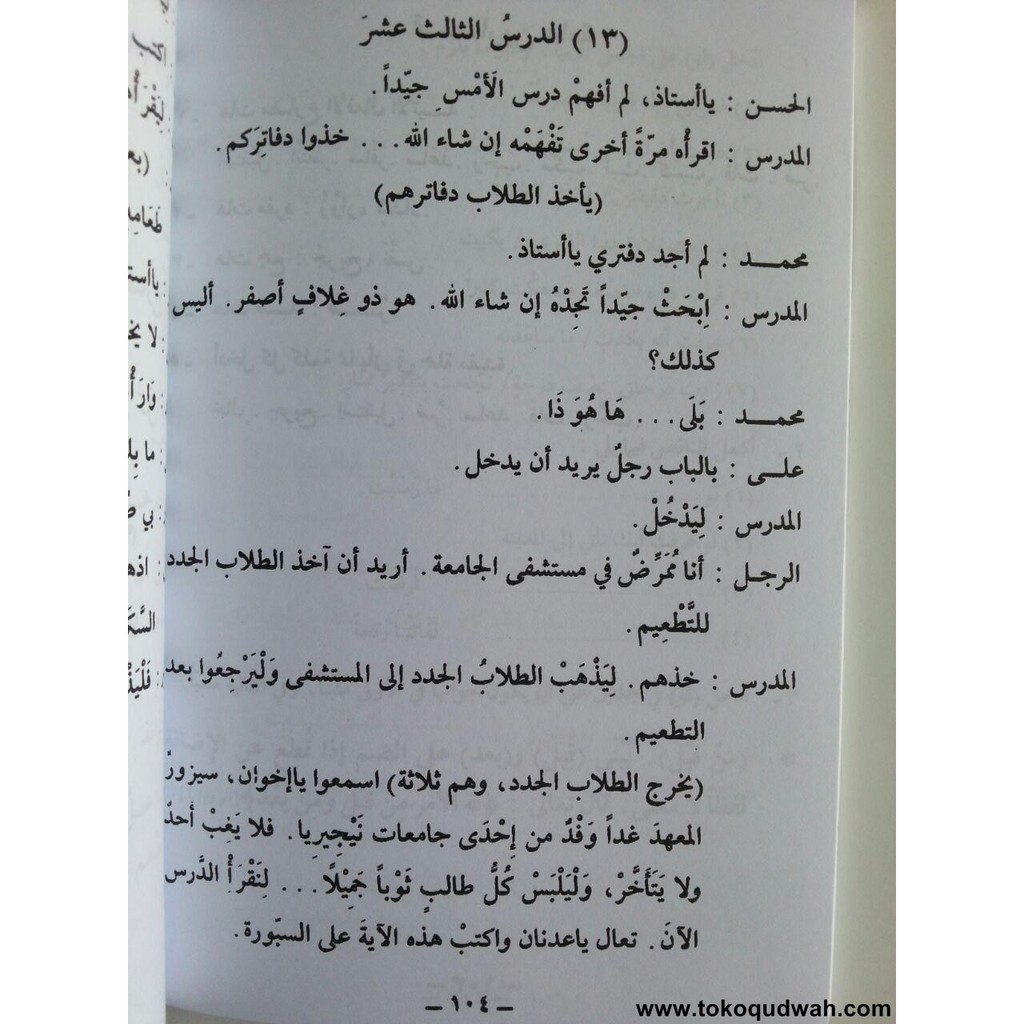 (١٣) الدرسُ الثالث عشرَ
الحسن : ياأستاذ، لم أفهمْ درس الَأمْسِ جيّداً.
المدرس : اقرأْه مرّةً أخرى تَفْهَمْه إن شاء الله... خذوا دفاتِرَكم.
(يأخذ الطلاب دفاترهم)
محمـــد : لم أجد دفتري ياأستاذ.
المدرس : اِبْحَثْ جيّداً تَجِدْهُ إن شاء الله. هو ذو غِلافٍ أصفر. أليس
كذلك؟
محمـــد : بَلَى... هَا هُوَ ذَا.
علـــى : بالباب رجلٌ يريد أن يدخل.
المدرس : لِيَدْخُلْ.
الرجـل : أنا مُمَرِّضٌ في مستشفى الجامعة. أريد أن آخذ الطلاب الجدد
للتَّطْعِيم.
المدرس : خذهم. لِيَذْهَبْ الطلابُ الجدد إلى المستشفى وَلْيَرْجِعُوا بعد
التطعيم.
(يخرج الطلاب الجدد، وهم ثلاثة) اسمعوا ياإخوان، سيزورُ
المعهدَ غداً وَفْدٌ من إِحْدَى جامعات نَيْجِيرِيا. فلا يَغِبْ أحدٌ
ولا يَتَأَخَّرْ، وَلْيَلْبَسْ كُلُّ طالبٍ ثَوْباً جَمِيْلًا... لِنَقْرَأْ الدَّرس
الآنَ. تعال ياعدنان واكتبْ هذه الآيةَ على السبّورة.
– ١٠٤ –
www.tokoqudwah.com